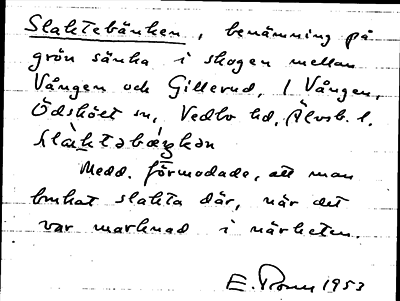 Slaktebänken, benämning på
grön sänka i skogen mellan
Vången och Gillerud, 1 Vången,
Ödskölt sn, Vedbo hd, Älvsb. l.
slàktəbæ̀ŋkən
Medd. förmodade, att man
brukat slakta där, när det
var marknad i närheten.
E. 1953